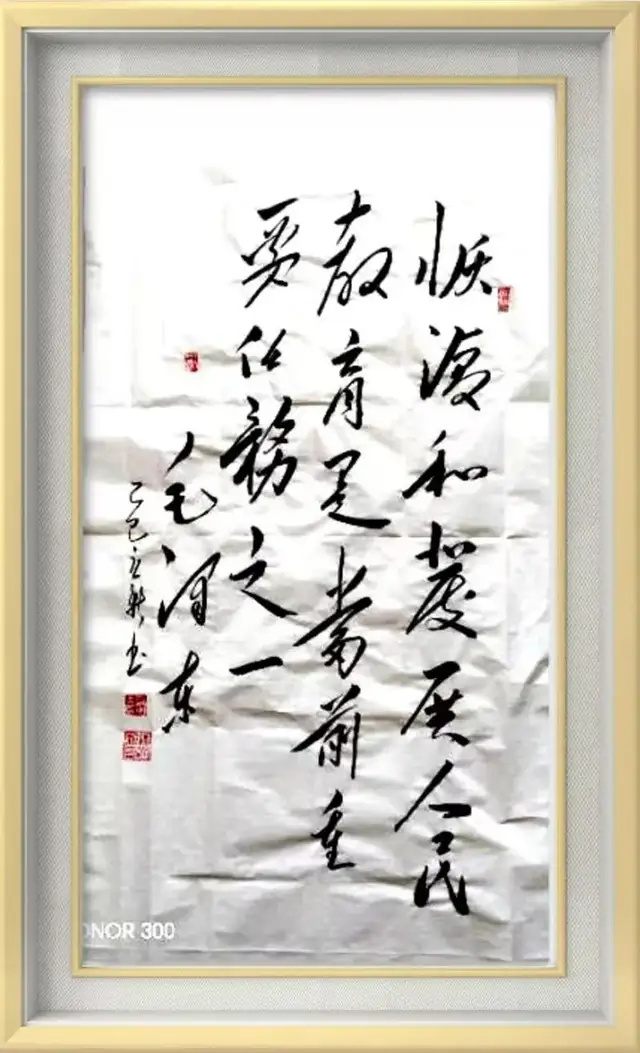 恢復和發展人民
教育是當前重
要任務之一
毛泽东
乙巳立新书
ONOR 300